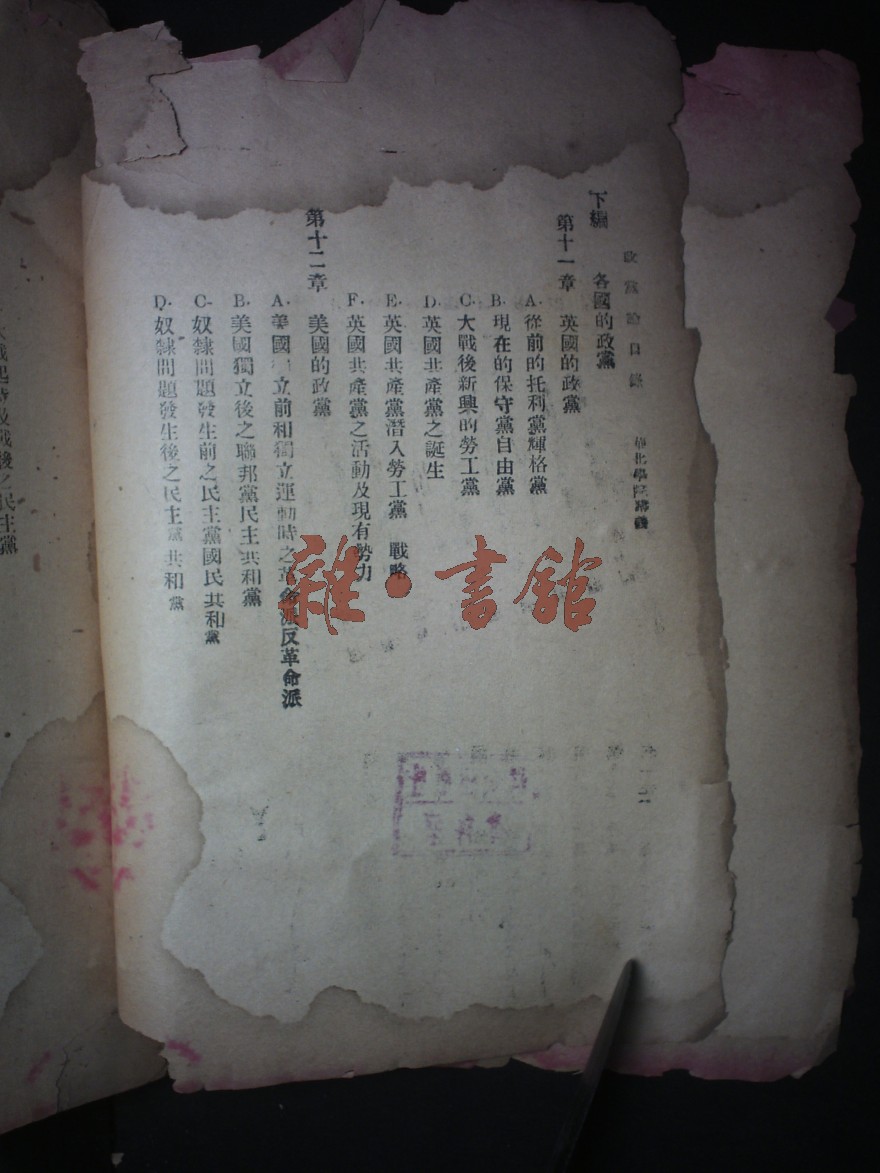 政黨論目錄　華北學院講義
下編　各國的政黨
第十一章　英國的政黨
A. 從前的托利黨輝格黨
B. 現在的保守黨自由黨
C. 大戰後新興的勞工黨
D. 英國共產黨之誕生
E. 英國共產黨潛入勞工黨　戰略
F. 英國共產黨之活動及現有勢力
第十二章　美國的政黨
A. 美國　立前和獨立運動時之革命派反革命派
B. 美國獨立後之聯邦黨民主共和黨
C. 奴隸問題發生前之民主黨國民共和黨
D. 奴隸問題發生後之民主黨共和黨
雜·書館